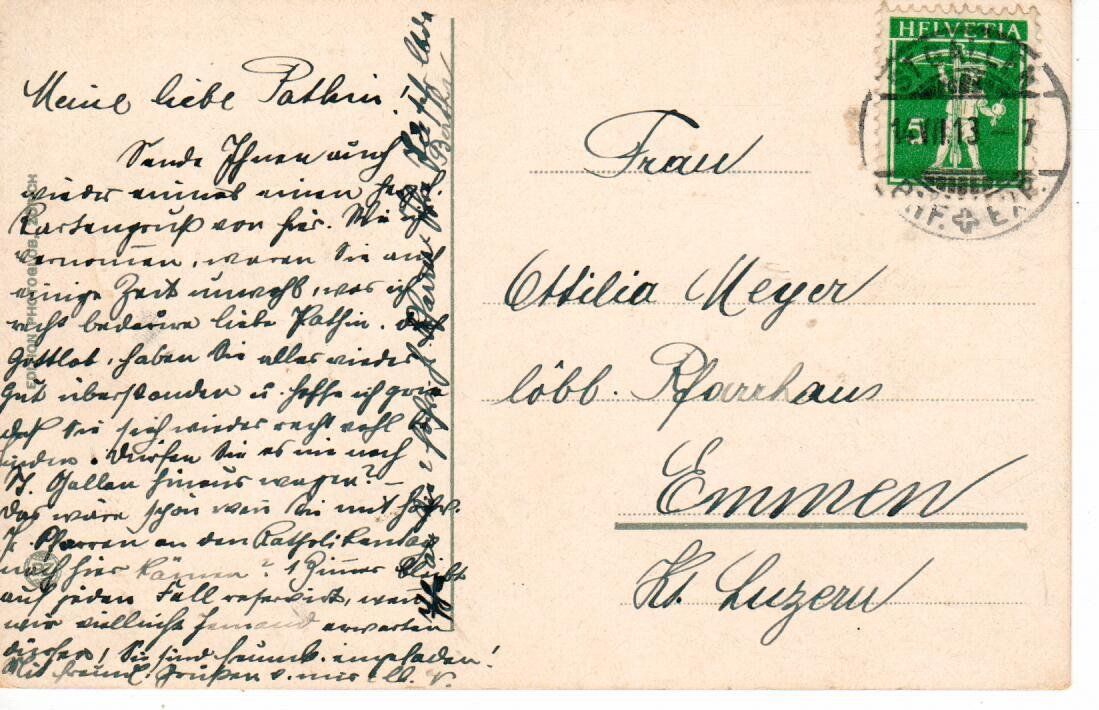 Meine liebe Pathin!
Sende Ihnen auch
wieder einmal einen herzl.
Kartengruß von hier. Wie ich
vernommen, waren Sie auch
einige Zeit unwohl, was ich
recht bedaure liebe Pathin. Doch
Gottlob, haben Sie alles wieder
gut überstanden u. hoffe ich gerne
daß Sie sich wieder recht wohl
finden. Dürfen Sie es nie nach
St. Gallen hinaus wagen? –
das wäre schön wenn Sie mit hochw.
H. Pfarrer an den Katholikentag
nach hier kämen? 1 Zimmer bleibt
auf jeden Fall reservirt, wenn
wir vielleicht Jemand erwarten
dürfen! Sie sind freundl. eingeladen!
Mit freundl. Grüßen v. mir
EDITION PHOTOGLOB, ZÜRICH
Frau
Ottilia Meyer
löbl. Pfarrhaus
Emmen
Kt. Luzern
HELVETIA
5
ST. GALLEN
14.VII.13 – 7
BRF. EXP.